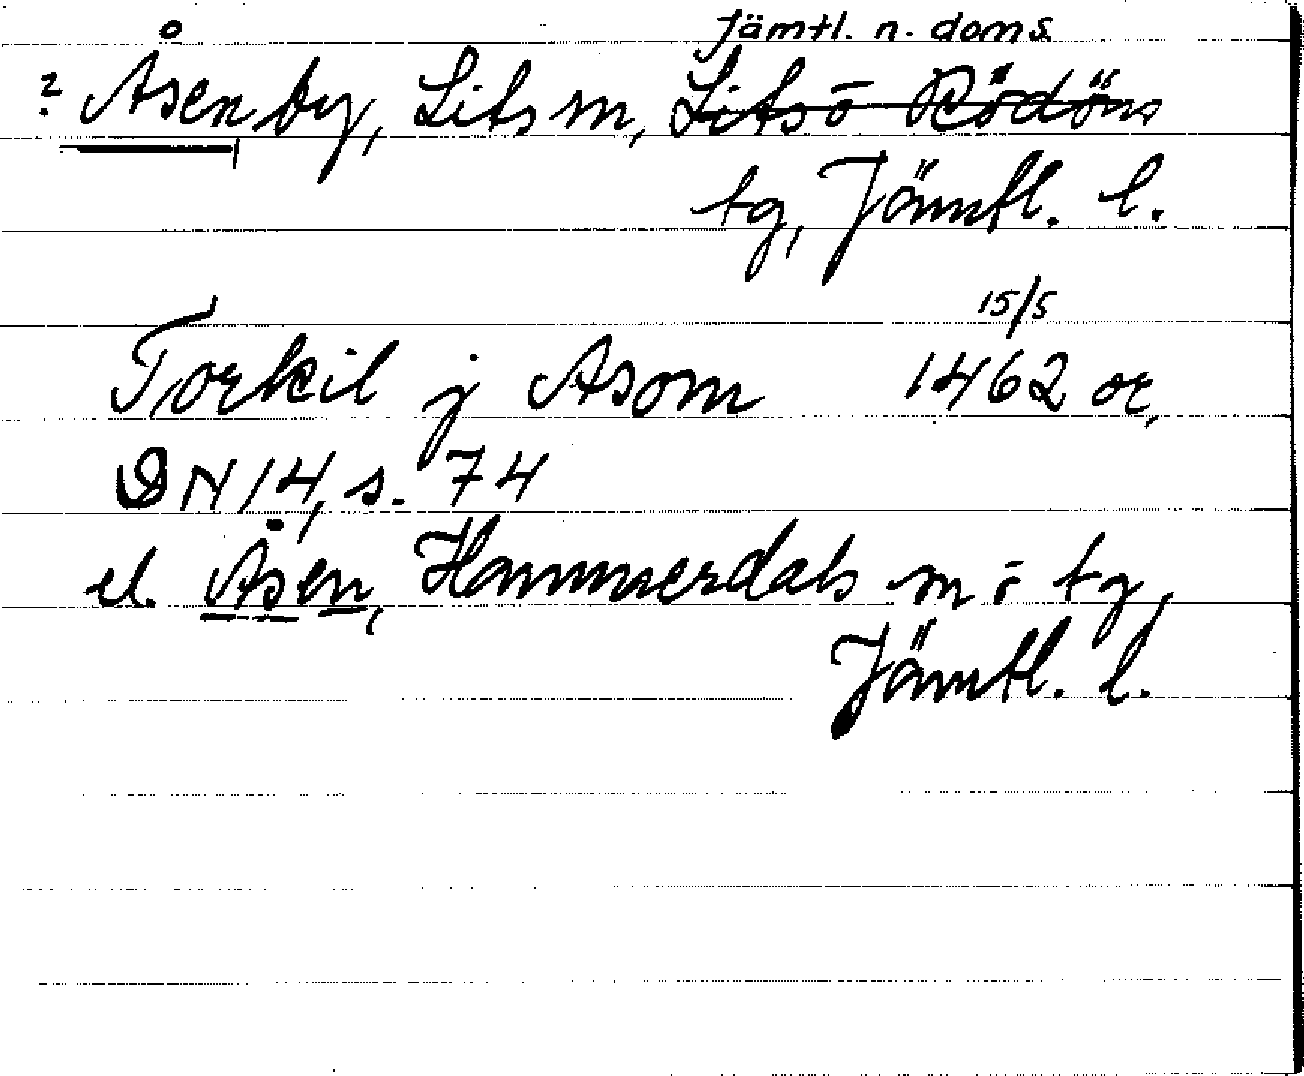 Jämtl. n. doms.
? Åsen by, Lits sn, Lits o Rödöns
tg, Jämtl. l.
15/5
Torkil j Asom 1462 or,
DN 14, s. 74
el. Åsen, Hammerdals sn o tg,
Jämtl. l.